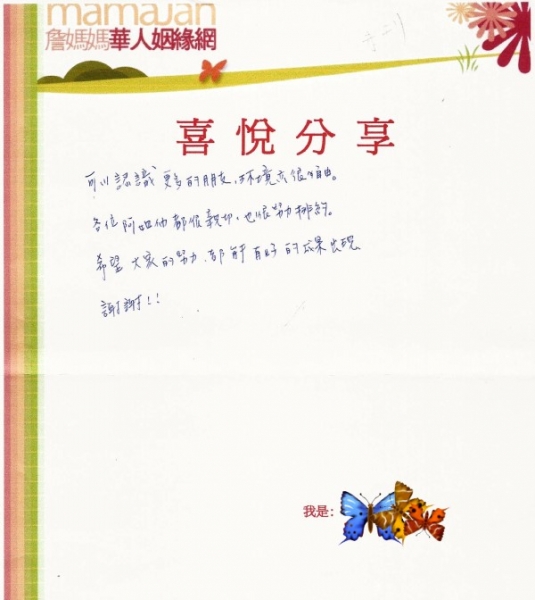 mamajan
詹媽媽華人姻緣網
喜悅分享
可以認識更多的朋友,环境亦很自由。
各位阿姐他都很親切,也很努力排約。
希望大家的努力,都能有好的成果出現
謝謝!!
我是: